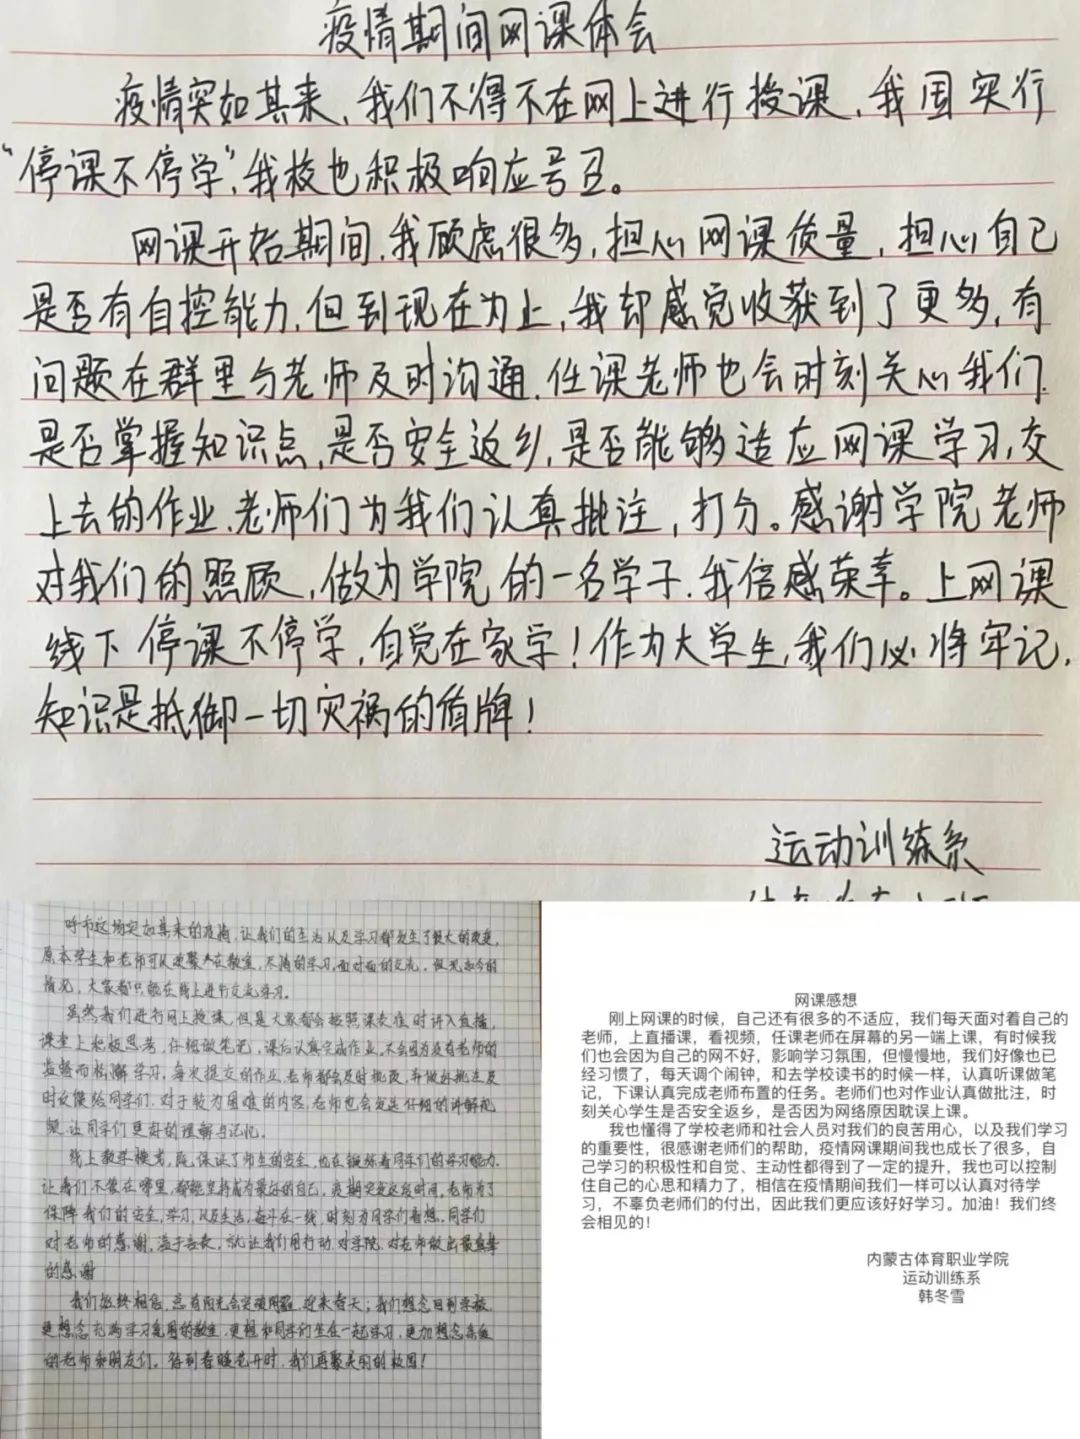 疫情期间网课体会
疫情突如其来,我们不得不在网上进行授课,我国实行
“停课不停学”,我校也积极响应号召。
网课开始期间,我顾虑很多,担心网课质量,担心自己
是否有自控能力,但到现在为止,我却感觉收获到了更多,有
问题在群里与老师及时沟通,任课老师也会时刻关心我们
是否掌握知识点,是否安全返乡,是否能够适应网课学习,交
上去的作业,老师们为我们认真批注,打分。感谢学院老师
对我们的照顾,做为学院的一名学子,我倍感荣幸。上网课
线下停课不停学,自觉在家学!作为大学生,我们必将牢记,
知识是抵御一切灾祸的盾牌!
运动训练系
呼市这场突如其来的疫情,让我们的生活以及学习都发生了很大的改变,
原本学生和老师可以欢聚在教室,尽情的学习,面对面的交流,但现如今的
情况,大家都只能在线上进行交流学习。
虽然我们进行网上授课,但是大家都会按照课表准时进入直播,
课堂上积极思考,仔细做笔记,课后认真完成作业。不会因为没有老师的
监督而松懈学习,每次提交的作业,老师都会及时批改,并做好批注及
时反馈给同学们。对于较为困难的内容,老师也会发送仔细的讲解视
频,让同学们更好的理解与记忆。
线上教学模式,既保证了师生的安全,也在锻炼着同学们的学习能力,
让我们不管在哪里,都能坚持成为最好的自己,疫期突发这段时间,老师为了
保障我们的安全,学习,以及生活,奋斗在一线,时刻为同学们着想,同学们
对老师的感谢,溢于言表,就让我们用行动,对学院,对老师做出最真挚
的感谢
我们始终相信,总有阳光会突破阴霾,迎来春天;我们想念回到学校,
更想念充满学习氛围的教室,更想和同学们坐在一起学习,更加想念亲爱
的老师和朋友们。待到春暖花开时,我们再聚美丽的校园!
网课感想
刚上网课的时候,自己还有很多的不适应,我们每天面对着自己的
老师,上直播课,看视频,任课老师在屏幕的另一端上课,有时候我
们也会因为自己的网不好,影响学习氛围,但慢慢地,我们好像也已
经习惯了,每天调个闹钟,和去学校读书的时候一样,认真听课做笔
记,下课认真完成老师布置的任务。老师们也对作业认真做批注,时
刻关心学生是否安全返乡,是否因为网络原因耽误上课。
我也懂得了学校老师和社会人员对我们的良苦用心,以及我们学习
的重要性,很感谢老师们的帮助,疫情网课期间我也成长了很多,自
己学习的积极性和自觉、主动性都得到了一定的提升,我也可以控制
住自己的心思和精力了,相信在疫情期间我们一样可以认真对待学
习,不辜负老师们的付出,因此我们更应该好好学习。加油!我们终
会相见的!
内蒙古体育职业学院
运动训练系
韩冬雪